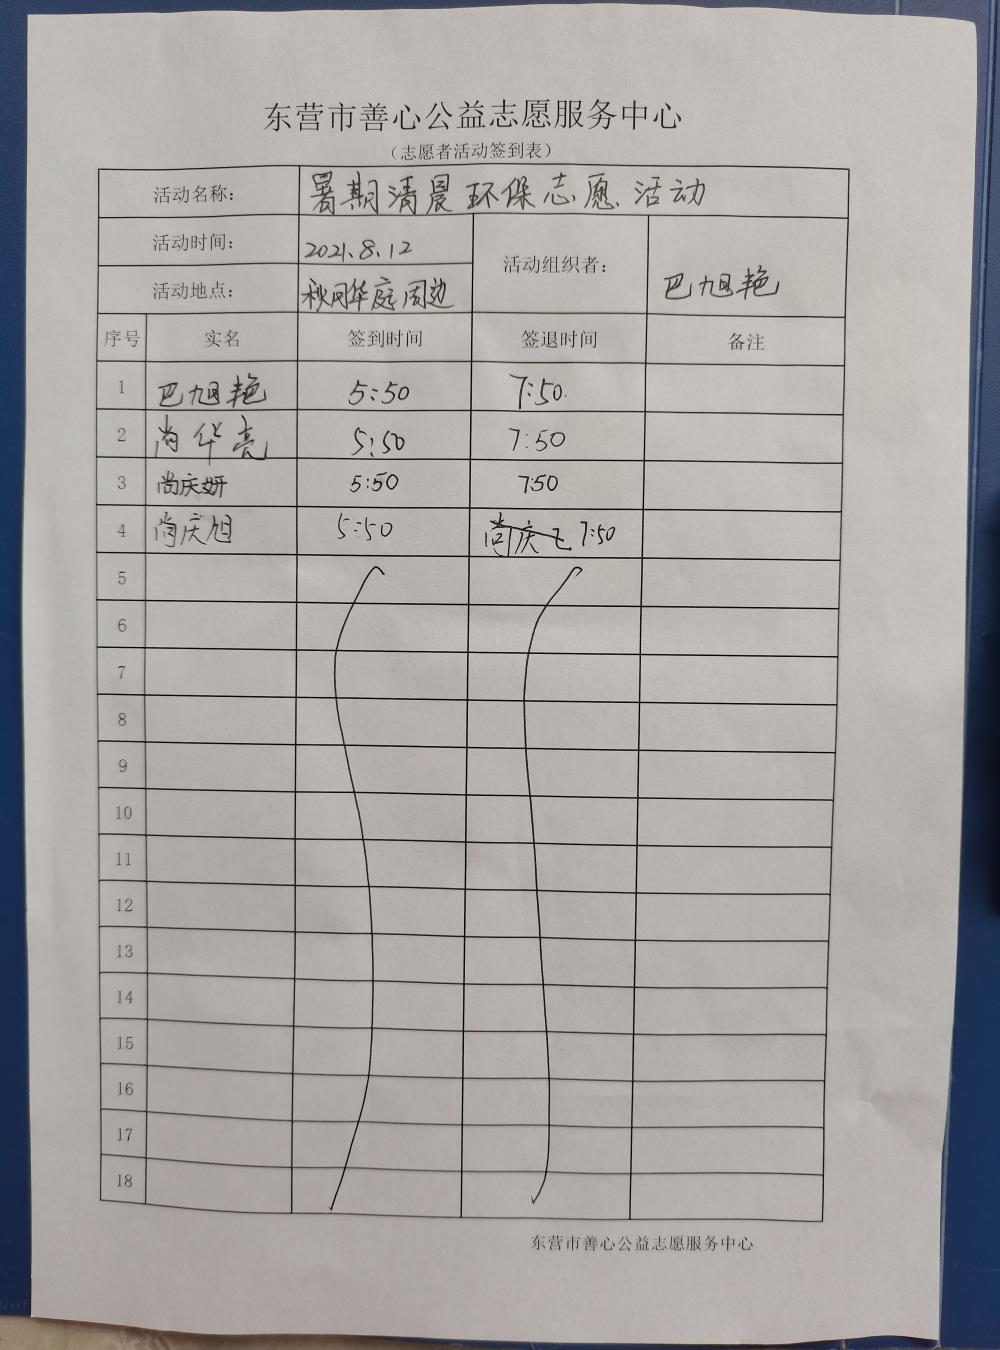 东营市善心公益志愿服务中心
（志愿者活动签到表）
活动名称： 暑期清晨环保志愿活动
活动时间： 2021.8.12 活动组织者： 巴旭艳
活动地点： 秋月华庭周边
序号 实名 签到时间 签退时间 备注
1 巴旭艳 5:50 7:50
2 尚华亮 5:50 7:50
3 尚庆妍 5:50 7:50
4 尚庆旭 5:50 7:50
5
6
7
8
9
10
11
12
13
14
15
16
17
18
东营市善心公益志愿服务中心